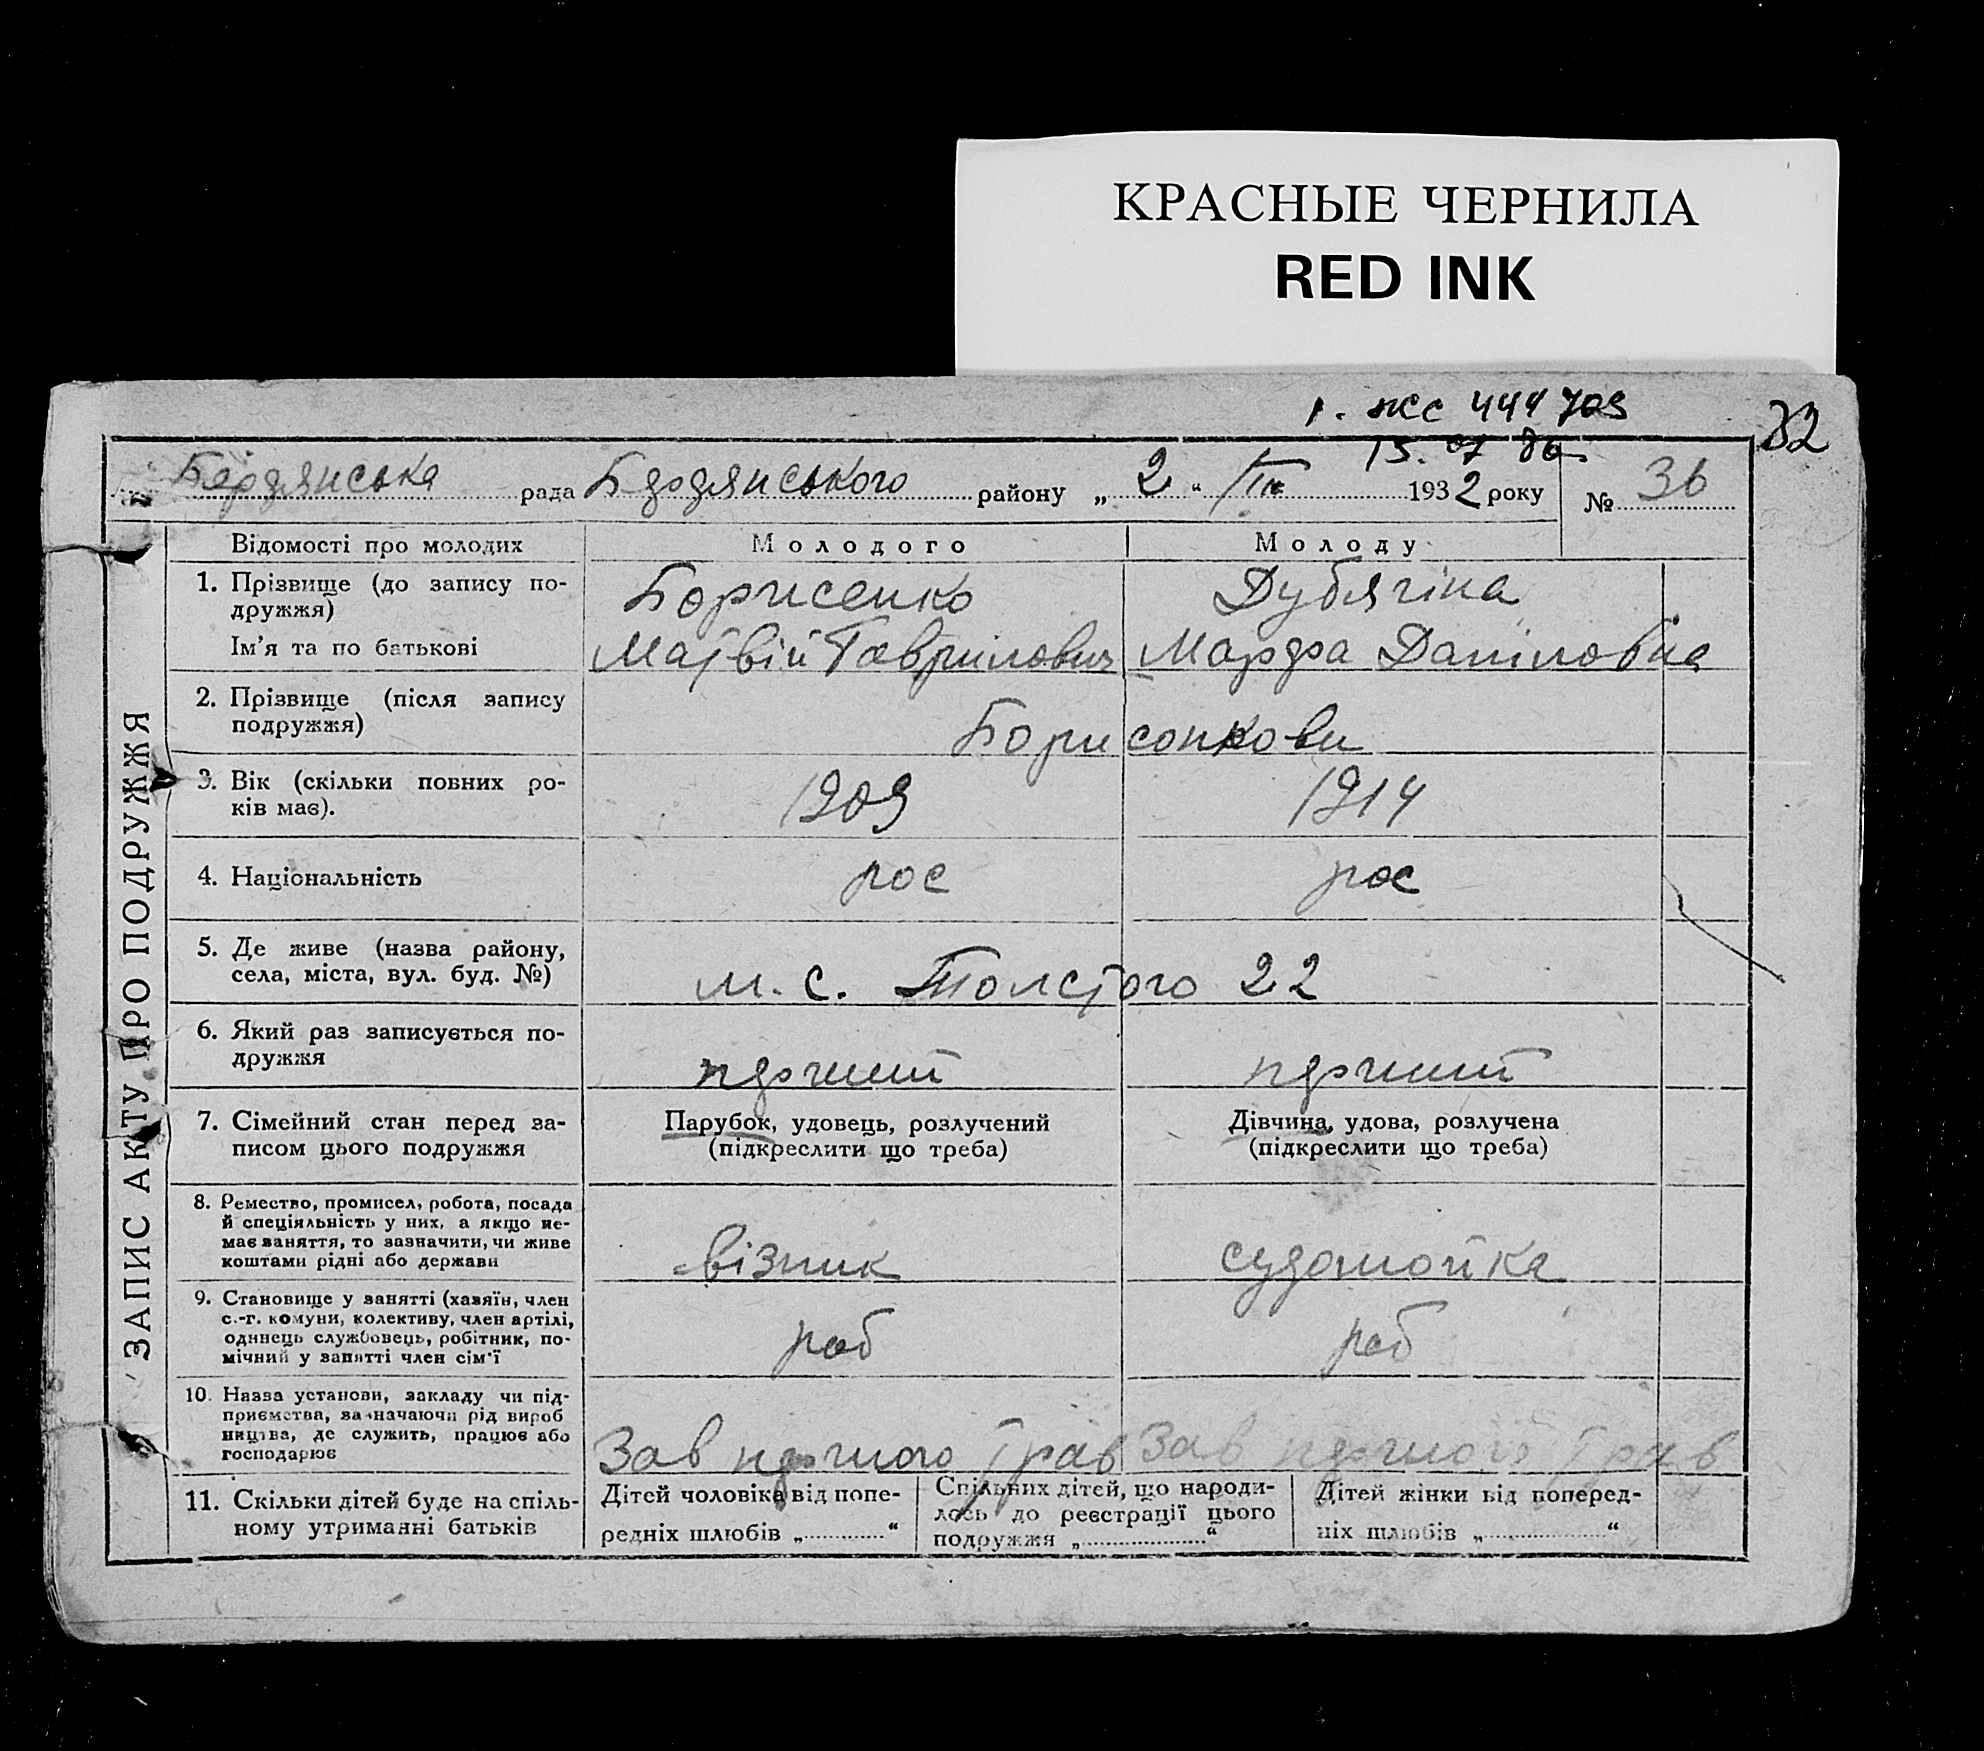 КРАСНЫЕ ЧЕРНИЛА
RED INK
жс 444 709
15. 07 86
32
Бердянська рада Бердянського району „ 2 “ ІІІ 1932 року
№ 36
ЗАПИС АКТУ ПРО ПОДРУЖЖЯ
Відомості про молодих Молодого Молоду
1. Прізвище (до запису по-
дружжя)
Борисенко Дубягіна
Ім'я та по батькові Матвій Гаврилович Марфа Даніловна
2. Прізвище (після запису
подружжя)
Борисенкови
3. Вік (скільки повних ро-
ків має).
1909 1914
4. Національність рос рос
5. Де живе (назва району,
села, міста, вул. буд. №)
м. с. Толстого 22
6. Який раз записується по-
дружжя
перший перший
7. Сімейний стан перед за-
писом цього подружжя
Парубок, удовець, розлучений
(підкреслити що треба)
Дівчина, удова, розлучена
(підкреслити що треба)
8. Ремество, промисел, робота, посада
й спеціяльність у них, а якщо не-
має заняття, то зазначити, чи живе
коштами рідні або держави
візник судомойка
9. Становище у занятті (хазяїн, член
с.-г. комуни, колективу, член артілі,
одинець службовець, робітник, по-
мічний у занятті член сім'ї
роб роб
10. Назва установи, закладу чи під-
приємства, зазначаючи рід вироб
ництва, де служить, працює або
господарює
Зав першого Трав Зав першого Трав
11. Скільки дітей буде на спіль-
ному утриманні батьків
Дітей чоловіка від попе-
редніх шлюбів „ “
Спільних дітей, що народи-
лось до реєстрації цього
подружжя „ “
Дітей жінки від поперед-
ніх шлюбів „ “